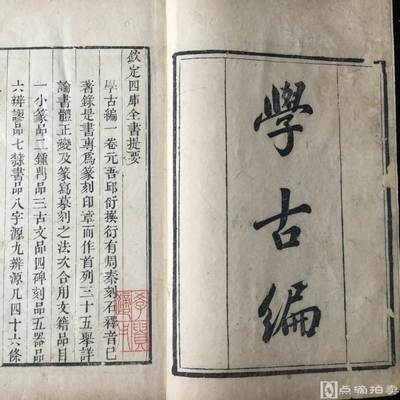 學古編
欽定四庫全書提要
學古編一卷元吾邱衍撰衍有周秦刻石釋音已
著錄是書專爲篆刻印章而作首列三十五舉詳
論書體正變及篆寫摹刻之法次合用文籍品目
一小篆品二鍾鼎品三古文品四碑刻品五器品
六辨謬品七隸書品八字源九辨源凡四十六條
点滴拍卖